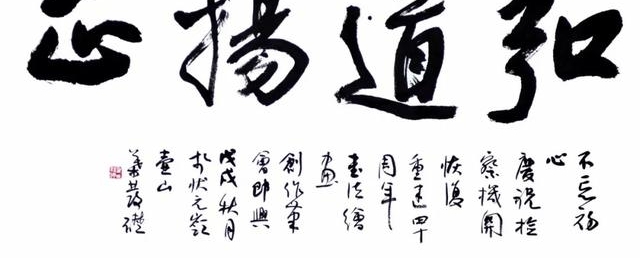 弘道揚正
不忘初
心
慶祝檢
察機關
恢復
重建四十
周年
書法繪
畫
創作筆
會即興
戊戌秋月
於狀元嶺
壺山